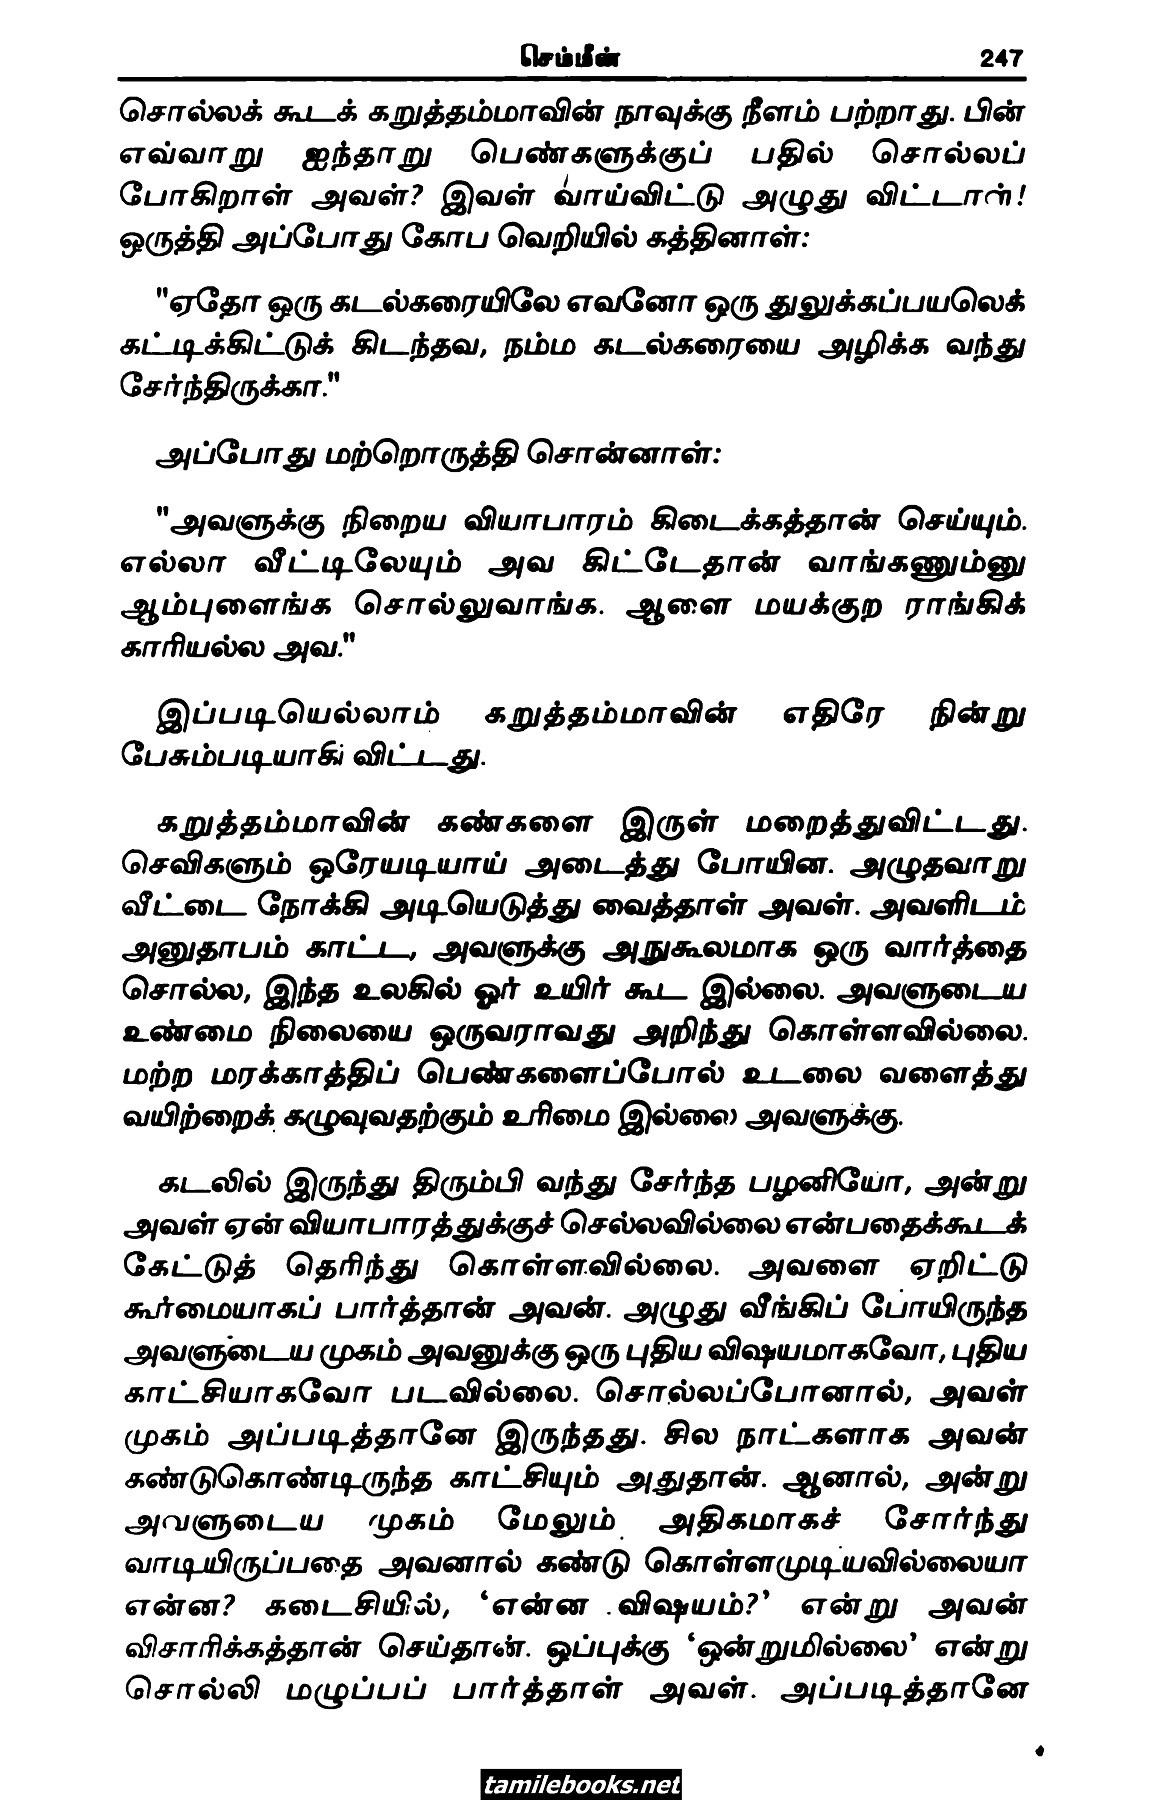 செம்மீன் 247
சொல்லக் கூடக் கறுத்தம்மாவின் நாவுக்கு நீளம் பற்றாது. பின்
எவ்வாறு ஐந்தாறு பெண்களுக்குப் பதில் சொல்லப்
போகிறாள் அவள்? இவள் வாய்விட்டு அழுது விட்டாள்!
ஒருத்தி அப்போது கோப வெறியில் கத்தினாள்:
"ஏதோ ஒரு கடல்கரையிலே எவனோ ஒரு துலுக்கப்பயலெக்
கட்டிக்கிட்டுக் கிடந்தவ, நம்ம கடல்கரையை அழிக்க வந்து
சேர்ந்திருக்கா."
அப்போது மற்றொருத்தி சொன்னாள்:
"அவளுக்கு நிறைய வியாபாரம் கிடைக்கத்தான் செய்யும்.
எல்லா வீட்டிலேயும் அவ கிட்டேதான் வாங்கணும்னு
ஆம்புளைங்க சொல்லுவாங்க. ஆளை மயக்குற ராங்கிக்
காரியல்ல அவ."
இப்படியெல்லாம் கறுத்தம்மாவின் எதிரே நின்று
பேசும்படியாகி விட்டது.
கறுத்தம்மாவின் கண்களை இருள் மறைத்துவிட்டது.
செவிகளும் ஒரேயடியாய் அடைத்து போயின. அழுதவாறு
வீட்டை நோக்கி அடியெடுத்து வைத்தாள் அவள். அவளிடம்
அனுதாபம் காட்ட, அவளுக்கு அநுகூலமாக ஒரு வார்த்தை
சொல்ல, இந்த உலகில் ஓர் உயிர் கூட இல்லை. அவளுடைய
உண்மை நிலையை ஒருவராவது அறிந்து கொள்ளவில்லை.
மற்ற மரக்காத்திப் பெண்களைப்போல் உடலை வளைத்து
வயிற்றைக் கழுவுவதற்கும் உரிமை இல்லை அவளுக்கு.
கடலில் இருந்து திரும்பி வந்து சேர்ந்த பழனியோ, அன்று
அவள் ஏன் வியாபாரத்துக்குச் செல்லவில்லை என்பதைக்கூடக்
கேட்டுத் தெரிந்து கொள்ளவில்லை. அவளை ஏறிட்டு
கூர்மையாகப் பார்த்தான் அவன். அழுது வீங்கிப் போயிருந்த
அவளுடைய முகம் அவனுக்கு ஒரு புதிய விஷயமாகவோ, புதிய
காட்சியாகவோ படவில்லை. சொல்லப்போனால், அவள்
முகம் அப்படித்தானே இருந்தது. சில நாட்களாக அவன்
கண்டுகொண்டிருந்த காட்சியும் அதுதான். ஆனால், அன்று
அவளுடைய முகம் மேலும் அதிகமாகச் சோர்ந்து
வாடியிருப்பதை அவனால் கண்டு கொள்ளமுடியவில்லையா
என்ன? கடைசியில், ‘என்ன விஷயம்?’ என்று அவன்
விசாரிக்கத்தான் செய்தான். ஒப்புக்கு ‘ஒன்றுமில்லை’ என்று
சொல்லி மழுப்பப் பார்த்தாள் அவள். அப்படித்தானே
tamilebooks.net